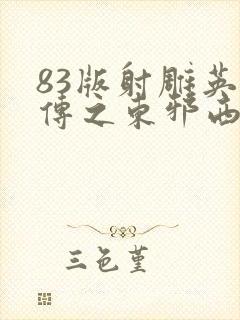 83版射雕英
傅之东邪西
三色堇